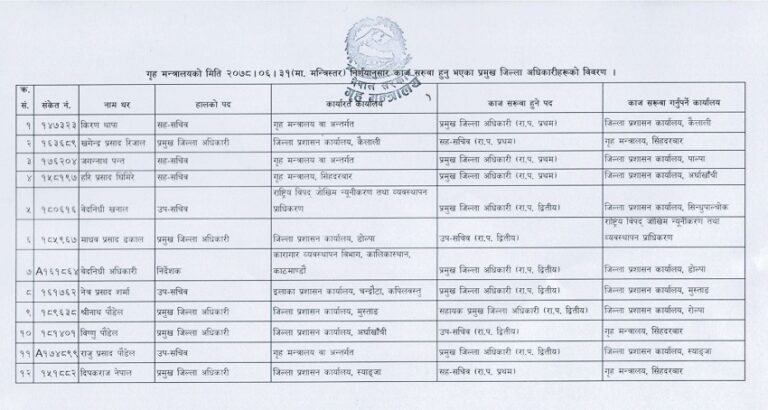 गृह मन्त्रालयको मिति २०७८।०६।३१(मा. मन्त्रिस्तर) निर्णयानुसार काज सरुवा हुनु भएका प्रमुख जिल्ला अधिकारीहरूको विवरण ।
नेपाल सरकार
गृह मन्त्रालय
क्र. सं. संकेत नं. नाम थर हालको पद कार्यरत कार्यालय काज सरुवा हुने पद काज सरुवा गर्नुपर्ने कार्यालय
१ १४७३२३ किरण थापा सह-सचिव गृह मन्त्रालय वा अन्तर्गत प्रमुख जिल्ला अधिकारी (रा.प. प्रथम) जिल्ला प्रशासन कार्यालय, कैलाली
२ १६३६८९ खगेन्द्र प्रसाद रिजाल प्रमुख जिल्ला अधिकारी जिल्ला प्रशासन कार्यालय, कैलाली सह-सचिव (रा.प. प्रथम) गृह मन्त्रालय, सिंहदरबार
३ १७६२०४ जगन्नाथ पन्त सह-सचिव गृह मन्त्रालय वा अन्तर्गत प्रमुख जिल्ला अधिकारी (रा.प. प्रथम) जिल्ला प्रशासन कार्यालय, पाल्पा
४ १५८१९७ हरि प्रसाद घिमिरे सह-सचिव गृह मन्त्रालय, सिंहदरबार प्रमुख जिल्ला अधिकारी (रा.प. प्रथम) जिल्ला प्रशासन कार्यालय, अर्घाखाँची
५ १८०६१६ वेदनिधी खनाल उप-सचिव राष्ट्रिय विपद् जोखिम न्यूनीकरण तथा व्यवस्थापन प्राधिकरण प्रमुख जिल्ला अधिकारी (रा.प. द्वितीय) जिल्ला प्रशासन कार्यालय, सिन्धुपाल्चोक
६ १८५९६७ माधव प्रसाद ढकाल प्रमुख जिल्ला अधिकारी जिल्ला प्रशासन कार्यालय, डोल्पा उप-सचिव (रा.प. द्वितीय) राष्ट्रिय विपद् जोखिम न्यूनीकरण तथा व्यवस्थापन प्राधिकरण
७ A१६१८६४ वेदनिधी अधिकारी निर्देशक कारागार व्यवस्थापन विभाग, कालिकास्थान, काठमाण्डौ प्रमुख जिल्ला अधिकारी (रा.प. द्वितीय) जिल्ला प्रशासन कार्यालय, डोल्पा
८ १६१७६२ नेत्र प्रसाद शर्मा उप-सचिव इलाका प्रशासन कार्यालय, चन्द्रौटा, कपिलवस्तु प्रमुख जिल्ला अधिकारी (रा.प. द्वितीय) जिल्ला प्रशासन कार्यालय, मुस्ताङ
९ १८९६३८ श्रीनाथ पौडेल प्रमुख जिल्ला अधिकारी जिल्ला प्रशासन कार्यालय, मुस्ताङ सहायक प्रमुख जिल्ला अधिकारी (रा.प. द्वितीय) जिल्ला प्रशासन कार्यालय, रोल्पा
१० १८१४०१ विष्णु पौडेल प्रमुख जिल्ला अधिकारी जिल्ला प्रशासन कार्यालय, अर्घाखाँची उप-सचिव (रा.प. द्वितीय) गृह मन्त्रालय, सिंहदरबार
११ A१७४८९९ राजु प्रसाद पौडेल उप-सचिव गृह मन्त्रालय वा अन्तर्गत प्रमुख जिल्ला अधिकारी (रा.प. द्वितीय) जिल्ला प्रशासन कार्यालय, स्याङ्जा
१२ १५१८८२ दिपकराज नेपाल प्रमुख जिल्ला अधिकारी जिल्ला प्रशासन कार्यालय, स्याङ्जा सह-सचिव (रा.प. प्रथम) गृह मन्त्रालय, सिंहदरबार